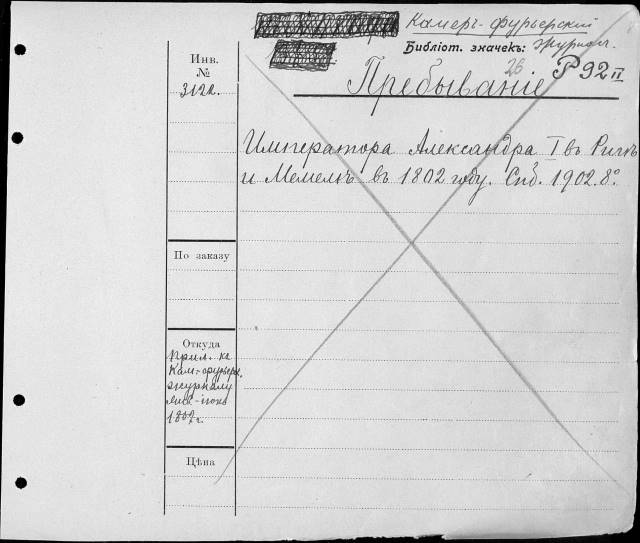 Камер-фурьерский
Библіот. значекъ: журнал.
26 P 92 II
Пребываніе
Императора Александра I въ Ригѣ
и Мемелѣ въ 1802 году. Спб. 1902. 8°.
Инв.
№
3122.
По заказу
Откуда
Прил. къ
Кам.-фурьерск.
журналу
1802 г.
Цѣна